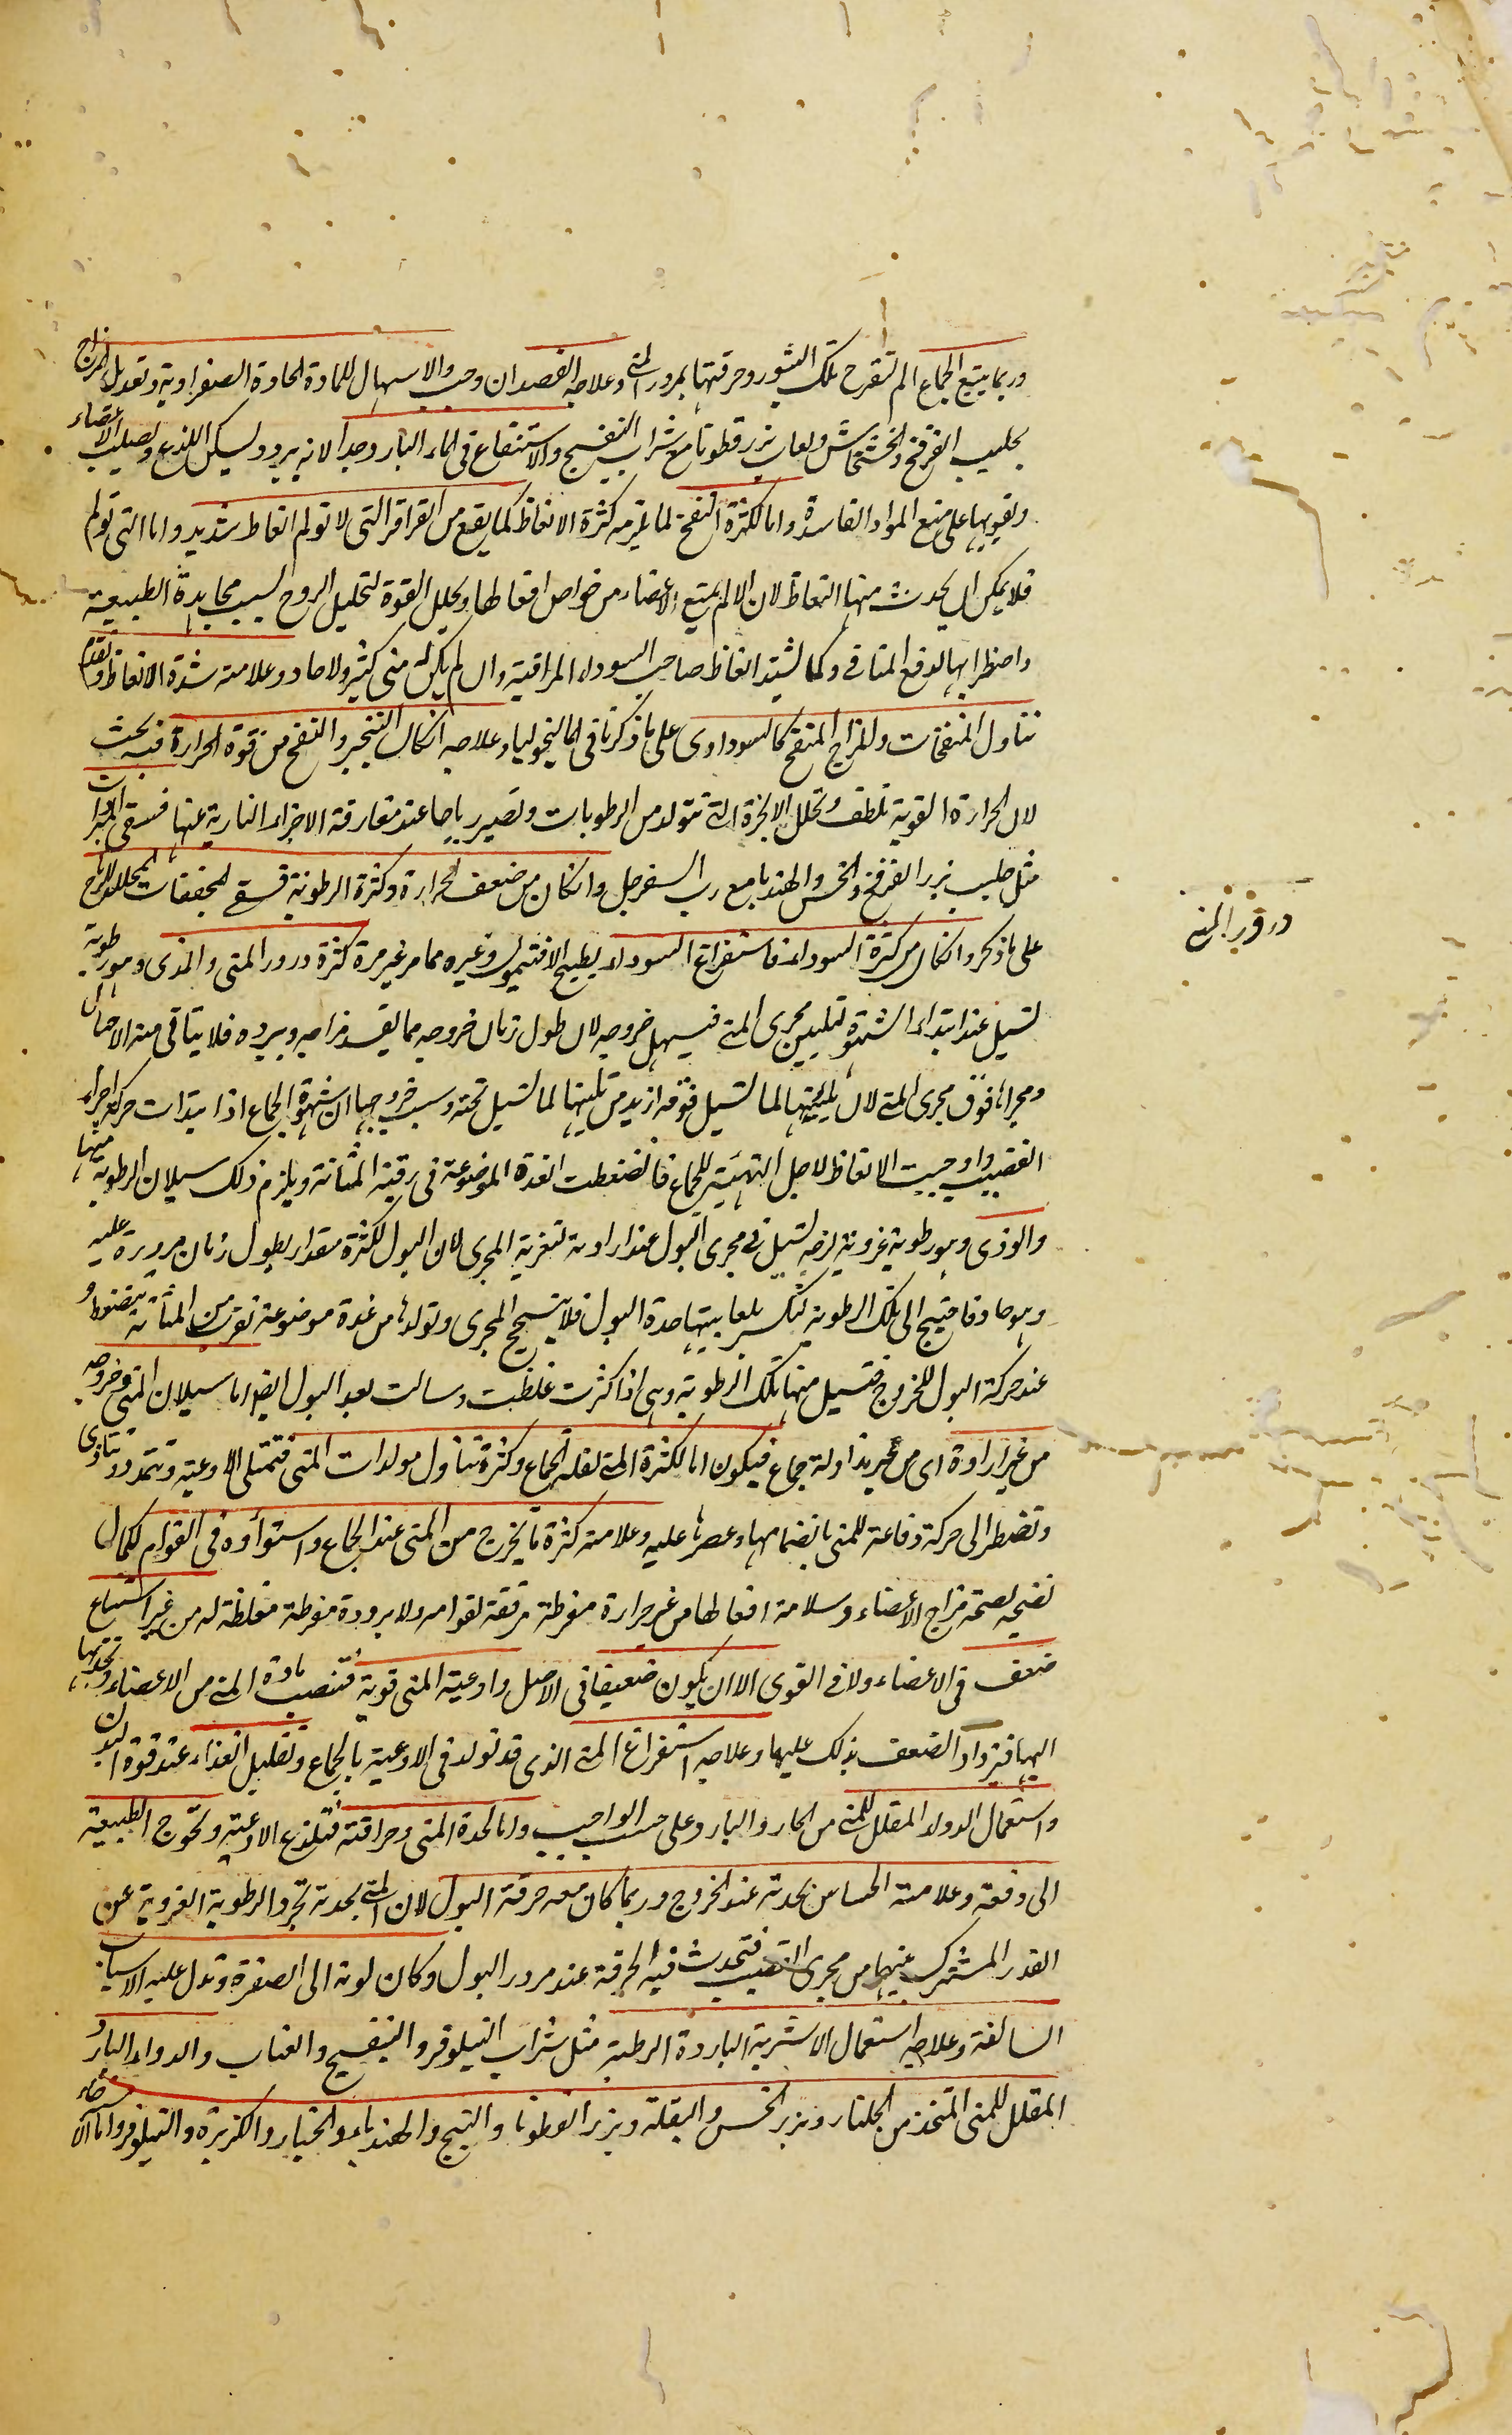 وربما يتبع الجماع الم لتقرح تلك البثور وحرقتها بمرور المنى وعلاجه الفصد ان وجب والاسهال للمادة الحادة الصفراوية وتعديل المزاج
بحليب الفرفخ والخشخاش ولعاب بزر قطونا مع شراب البنفسج والاستنقاع فى الماء البارد وجدا لانه يبرد ويسكن اللذع ويصلب الاعضاء
ويقويها على منع المواد الفاسدة واما لكثرة النفخ لما يلزمه كثرة الانعاظ كما يقع من القراقر التى لا تولم انعاظ شديد واما التى تولم
فلا يمكن ان يحدث منها انتعاظ لان الالم يمنع الاعضاء من خواص افعالها ويحلل القوة لتحليل الروح بسبب مجاهدة الطبيعة
واضطرابها لدفع المنافى وكما يشتد انعاظ صاحب السوداء المراقية وان لم يكن له منى كثير ولا حاد وعلامته شدة الانعاظ وتقدم
تناول المنفخات وللمزاج المنفخ كالسوداوى على ما ذكرنا فى الماليخوليا وعلاجه انكان التبخير والنفخ من قوة الحرارة فيه بحث
لان الحرارة القوية تلطف وتحلل الابخرة التى تتولد من الرطوبات وتصير رياحا عند مفارقة الاجزاء النارية عنها فسقى المبردات
مثل حليب بزر الفرفخ والخس والهندبا مع رب السفرجل وانكان من ضعف الحرارة وكثرة الرطوبة فسقى المجففات المحللة للرياح
على ما ذكر وانكان من كثرة السوداء فاستفراغ السوداء بطبيخ الافتيمون وغيره مما مر غير مرة كثرة درور المنى والمذى وهو رطوبة
تسيل عند ابتداء الشهوة لتليين مجرى المنى فيسهل خروجه لان طول زمان خروجه مما يفسد مزاجه ويبرده فلا يتاتى منه الاحبال
ومجراها فوق مجرى المنى لان تليينها لما تسيل فوقه ازيد من تليينها لما تسيل تحته وسبب خروجها ان شهوة الجماع اذا ابتدات حركت اجزاء
القضيب واوجبت الانعاظ لاجل التهيئة للجماع فانضغطت الغدة الموضوعة فى رقبة المثانة ويلزم ذلك سيلان الرطوبة منها
والودى وهو رطوبة غروية لزجة تسيل فى مجرى البول عند ارادته لتغرية المجرى لان البول لكثرة مقداره يطول زمان مروره عليه
وهو حاد فاحتيج الى تلك الرطوبة لتكسر بلعابيتها حدة البول فلا ينسحج المجرى وتولدها من غدة موضوعة بقرب من المثانة تنضغط
عند حركة البول للخروج فتسيل منها تلك الرطوبة وهى اذا كثرت غلظت وسالت بعد البول ايضا اما سيلان المنى وخروجه
من غير ارادة اى من غير مزاولة جماع فيكون اما لكثرة المنى لقلة الجماع وكثرة تناول مولدات المنى فتمتلى الاوعية وتتمدد وتتاذى
وتضطر الى حركة دفاعة للمنى بانضمامها وعصرها عليه وعلامته كثرة ما يخرج من المنى عند الجماع واستواؤه فى القوام لكمال
نضجه لصحة مزاج الاعضاء وسلامة افعالها من غير حرارة مفرطة مرققة لقوامه ولا برودة مفرطة مغلظة له من غير استتباع
ضعف فى الاعضاء ولا فى القوى الا ان يكون ضعيفا فى الاصل واوعية المنى قوية فتنصب مادة المنى من الاعضاء وتجذبها
اليها فيزداد الضعف بذلك عليها وعلاجه استفراغ المنى الذى قد تولد فى الاوعية بالجماع وتقليل الغذاء عند قوة البدن
واستعمال الدواء المقلل للمنى من الحار والبارد على حسب الواجب واما لحدة المنى وحرافته فتلذع الاوعية وتحوج الطبيعة
الى دفعه وعلامته احساس بحدته عند الخروج وربما كان معه حرقة البول لان المنى بحدته تجرد الرطوبة الغروية عن
القدر المشترك بينهما من مجرى القضيب فتحدث فيه الحرقة عند مرور البول وكان لونه الى الصفرة وتدل عليه الاسباب
السالفة وعلاجه استعمال الاشربة الباردة الرطبة مثل شراب النيلوفر والبنفسج والعناب والدواء البارد
المقلل للمنى المتخذ من الجلنار وبزر الخس والبقلة وبزر القطونا والبنج والهندباء والخيار والكزبرة والنيلوفر واما
درور المنى